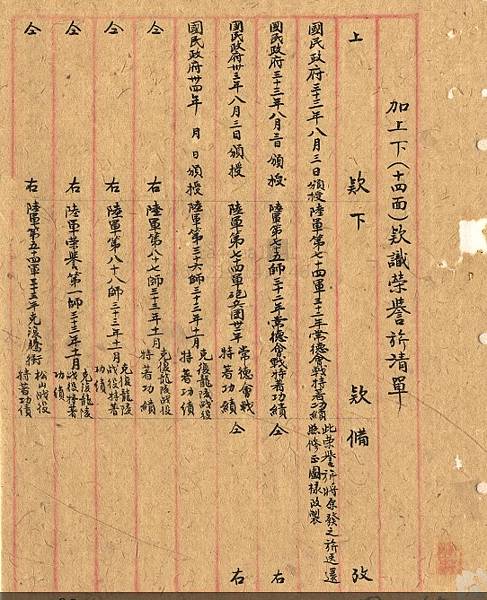 加上下(十四面)款識榮譽旂清單
上款 下款 備攷
國民政府三十三年八月三日頒授 陸軍第七十四軍三十二年常德會戰特著功績 此榮譽旂將原發之旂送還照修正圖樣改製
國民政府三十三年八月三日頒授 陸軍第五十七師三十二年常德會戰特著功績 仝右
國民政府卅三年八月三日頒授 陸軍第七十四軍砲兵團卅二年常德會戰特著功績 仝右
國民政府卅四年 月 日頒授 陸軍第三十六師三十三年十一月克復龍陵戰役特著功績
仝右 陸軍第八十七師三十三年十一月克復龍陵戰役特著功績
仝右 陸軍第八十八師三十三年十一月克復龍陵戰役特著功績
仝右 陸軍榮譽第一師三十三年十一月克復龍陵戰役特著功績
仝右 陸軍第五十四軍三十三年克復騰衝松山戰役特著功績